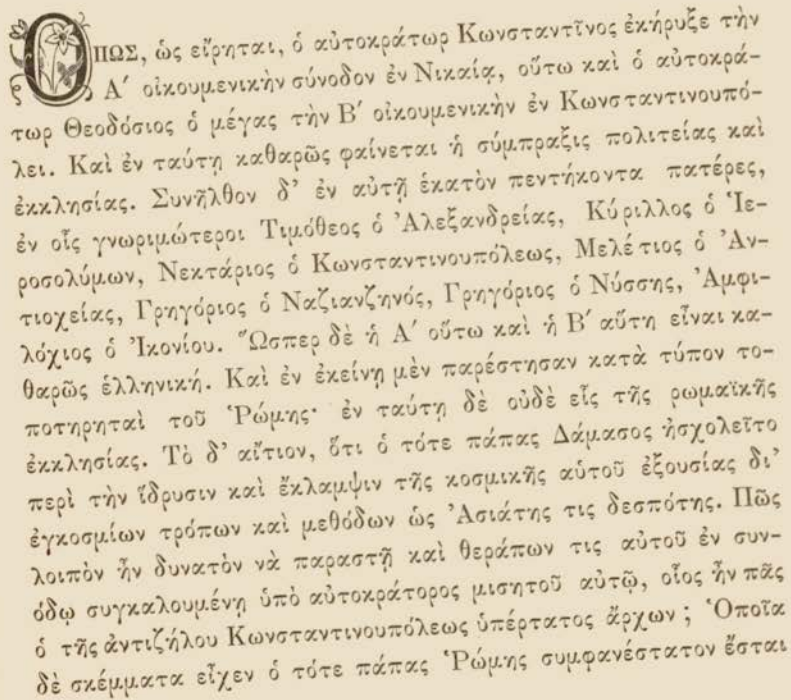 ΟΠΩΣ, ὡς εἴρηται, ὁ αὐτοκράτωρ Κωνσταντῖνος ἐκήρυξε τὴν
Α΄ οἰκουμενικὴν σύνοδον ἐν Νικαίᾳ, οὕτω καὶ ὁ αὐτοκρά-
τωρ Θεοδόσιος ὁ μέγας τὴν Β΄ οἰκουμενικὴν ἐν Κωνσταντινουπό-
λει. Καὶ ἐν ταύτῃ καθαρῶς φαίνεται ἡ σύμπραξις πολιτείας καὶ
ἐκκλησίας. Συνῆλθον δ’ ἐν αὐτῇ ἑκατὸν πεντήκοντα πατέρες,
ἐν οἷς γνωριμώτεροι Τιμόθεος ὁ Ἀλεξανδρείας, Κύριλλος ὁ Ἱε-
ροσολύμων, Νεκτάριος ὁ Κωνσταντινουπόλεως, Μελέτιος ὁ Ἀν-
τιοχείας, Γρηγόριος ὁ Ναζιανζηνός, Γρηγόριος ὁ Νύσσης, Ἀμφι-
λόχιος ὁ Ἰκονίου. Ὥσπερ δὲ ἡ Α΄ οὕτω καὶ ἡ Β΄ αὕτη εἶναι κα-
θαρῶς ἑλληνική. Καὶ ἐν ἐκείνῃ μὲν παρέστησαν κατὰ τύπον το-
ποτηρηταὶ τοῦ Ῥώμης· ἐν ταύτῃ δὲ οὐδὲ εἷς τῆς ρωμαϊκῆς
ἐκκλησίας. Τὸ δ’ αἴτιον, ὅτι ὁ τότε πάπας Δάμασος ἠσχολεῖτο
περὶ τὴν ἵδρυσιν καὶ ἔκλαμψιν τῆς κοσμικῆς αὑτοῦ ἐξουσίας δι’
ἐγκοσμίων τρόπων καὶ μεθόδων ὡς Ἀσιάτης τις δεσπότης. Πῶς
λοιπὸν ἦν δυνατὸν νὰ παραστῇ καὶ θεράπων τις αὐτοῦ ἐν συν-
όδῳ συγκαλουμένῃ ὑπὸ αὐτοκράτορος μισητοῦ αὐτῷ, οἷος ἦν πᾶς
ὁ τῆς ἀντιζήλου Κωνσταντινουπόλεως ὑπέρτατος ἄρχων; Ὁποῖα
δὲ σκέμματα εἶχεν ὁ τότε πάπας Ῥώμης συμφανέστατον ἔσται